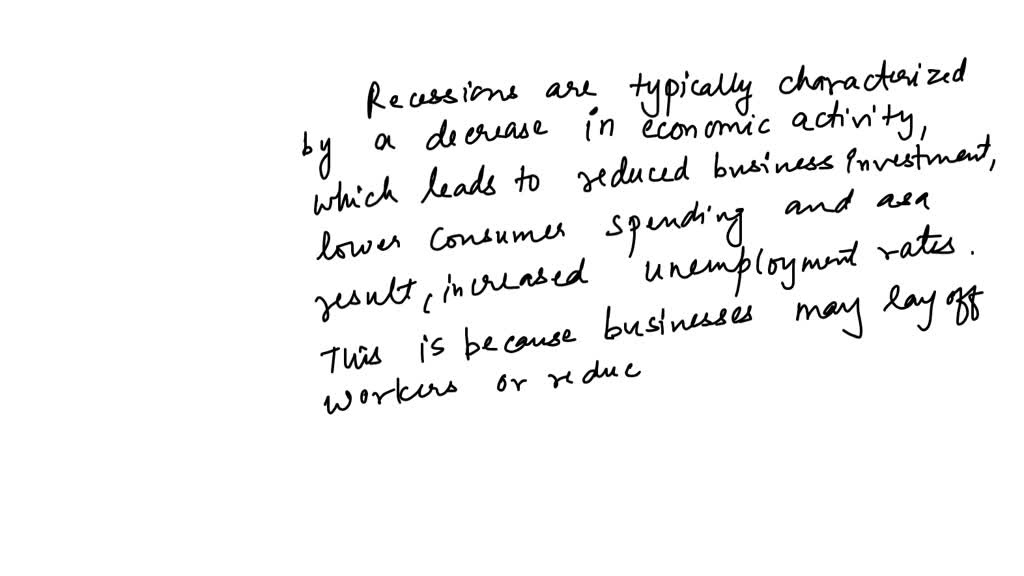 Recessions are typically characterized
by a decrease in economic activity,
which leads to reduced business investment,
lower consumer spending and as a
result, increased unemployment rates.
This is because businesses may lay off
workers or reduc